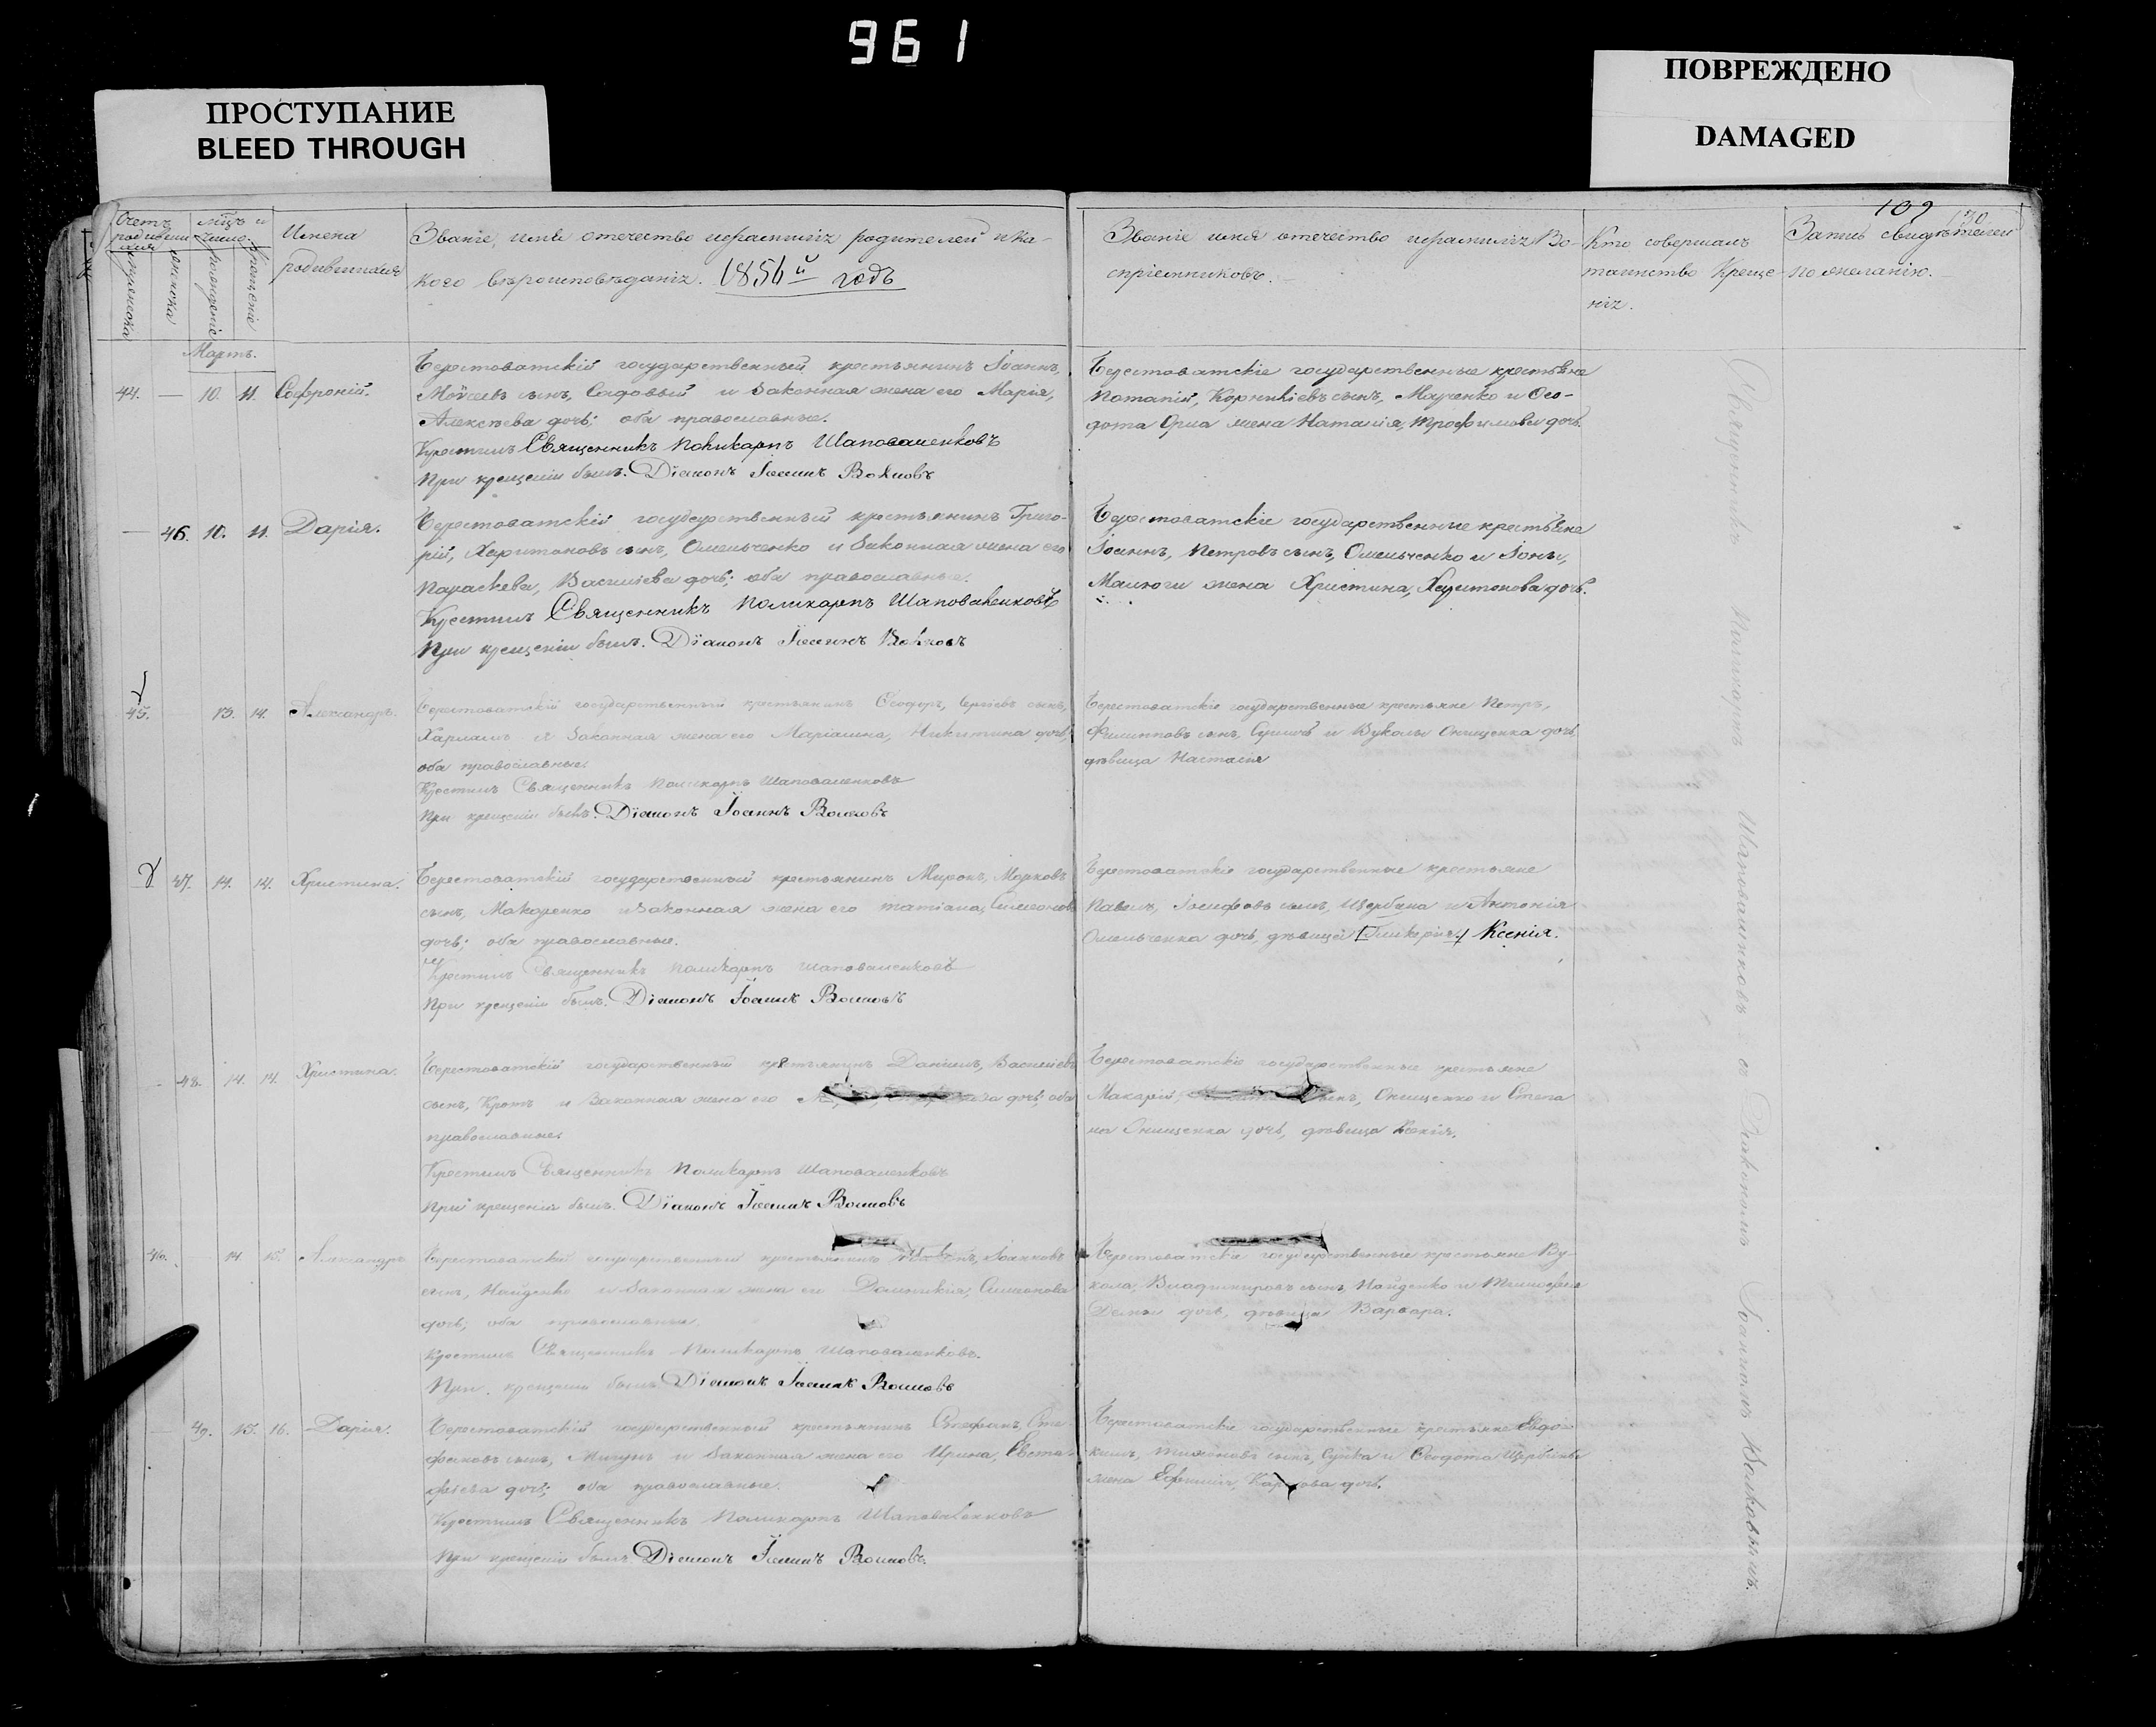 961
ПРОСТУПАНИЕ
BLEED THROUGH
ПОВРЕЖДЕНО
DAMAGED
109
Счетъ родившихся
мужеска
женска
Мѣсяцъ и число
рожденіе
крещеніе
Имена родившихся
Званіе, имя отечество и фамилія родителей и ка-
кого вѣроисповѣданія. 1856й годъ
Званіе имя отечество и фамилія Во-
спріемниковъ.
Кто совершалъ
таинство Креще-
нія.
Запись свидѣтелей
по желанію.
Мартъ.
44. — 10. 11. Софроній.
Берестоватскій государственный крестьянинъ Іоаннъ,
Моѵсеевъ сынъ, Садовый и законная жена его Марія,
Алексѣева дочь; оба православные.
Крестилъ Священникъ Поликарпъ Шаповаленковъ
При крещеніи былъ. Діаконъ Іоаннъ Волковъ
Берестоватскіе государственные крестьяне
Потапій, Корниліевъ сынъ, Марченко и Ѳео-
дота жена Наталія, Трофимова дочь.
— 46. 10. 11. Дарія.
Берестоватскій государственный крестьянинъ Григо-
рій, Харитоновъ сынъ, Омельченко и законная жена его
Параскева, Василіева дочь; оба православные.
Крестилъ Священникъ Поликарпъ Шаповаленковъ
При крещеніи былъ. Діаконъ Іоаннъ Волковъ
Берестоватскіе государственные крестьяне
Іоаннъ, Петровъ сынъ, Омельченко и Іоны,
Малюги жена Христина, Харитонова дочь.
45. 13. 14. Александръ.
Берестоватскій государственный крестьянинъ Ѳеодоръ, Сергіевъ сынъ,
Харлашъ и законная жена его Маріанна, Никитина дочь;
оба православные.
Крестилъ Священникъ Поликарпъ Шаповаленковъ
При крещеніи былъ. Діаконъ Іоаннъ Волковъ
Берестоватскіе государственные крестьяне Петръ,
Филипповъ сынъ, и Вуколы Онищенка дочь,
дѣвица Настасія
47. 14. 14. Христина.
Берестоватскій государственный крестьянинъ Миронъ, Марковъ
сынъ, Макаренко и законная жена его Татіана, Симеонов
дочь; оба православные.
Крестилъ Священникъ Поликарпъ Шаповаленковъ
При крещеніи былъ. Діаконъ Іоаннъ Волковъ
Берестоватскіе государственные крестьяне
Павелъ, Іосифовъ сынъ, Щербина и Антонія
Омельченка дочь, дѣвица [Гликерія.] Ксенія.
48. 14. 14. Христина.
Берестоватскій государственный крестьянинъ Даніилъ, Василіевъ
сынъ, Кротъ и законная жена его дочь; оба
православные.
Крестилъ Священникъ Поликарпъ Шаповаленковъ
При крещеніи былъ. Діаконъ Іоаннъ Волковъ
Берестоватскіе государственные крестьяне
Макарій, сынъ, Онищенко и Степа
на Онищенка дочь, дѣвица Ксенія.
46. 14. 15. Александръ
Берестоватскій государственный крестьянинъ Іоанновъ
сынъ, Найденко и законная жена его Домникія, Симеонова
дочь; оба православные.
Крестилъ Священникъ Поликарпъ Шаповаленковъ.
При крещеніи былъ. Діаконъ Іоаннъ Волковъ
Берестоватскіе государственные крестьяне Ву-
кола, Владимировъ сынъ, Найденко и Тимофея
дочь, дѣвица Варвара.
49. 15. 16. Дарія.
Берестоватскій государственный крестьянинъ Стефанъ, Сте
фановъ сынъ, и законная жена его Ирина, Евста-
фіева дочь; оба православные.
Крестилъ Священникъ Поликарпъ Шаповаленковъ
При крещеніи былъ. Діаконъ Іоаннъ Волковъ.
Берестоватскіе государственные крестьяне Евдо-
кимъ, Тихоновъ сынъ, и Ѳеодота Щербины
жена Ефимія, Карпова дочь.
Священникъ Поликарпъ Шаповаленковъ съ Діакономъ Іоанномъ Волковымъ.